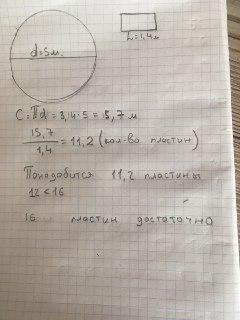 d=5м.
L=1,4м
C=πd=3,14·5=15,7 м
15,7
1,4
=11,2 (кол-во пластин)
Понадобится 11,2 пластины
12<16
16 пластин достаточно